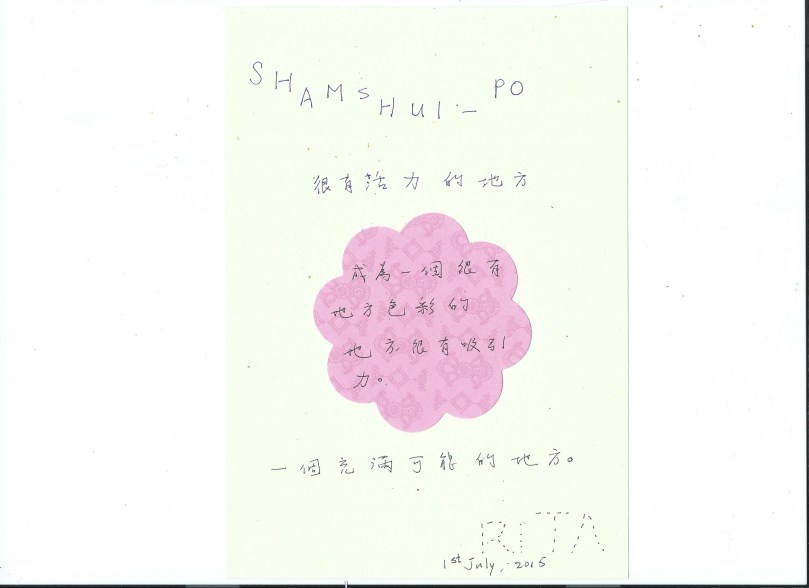 SHAMSHUI-PO
很有活力的地方
成為一個很有
地方色彩的
地方很有吸引
力。
一個充滿可能的地方。
RITA
1st July, 2015